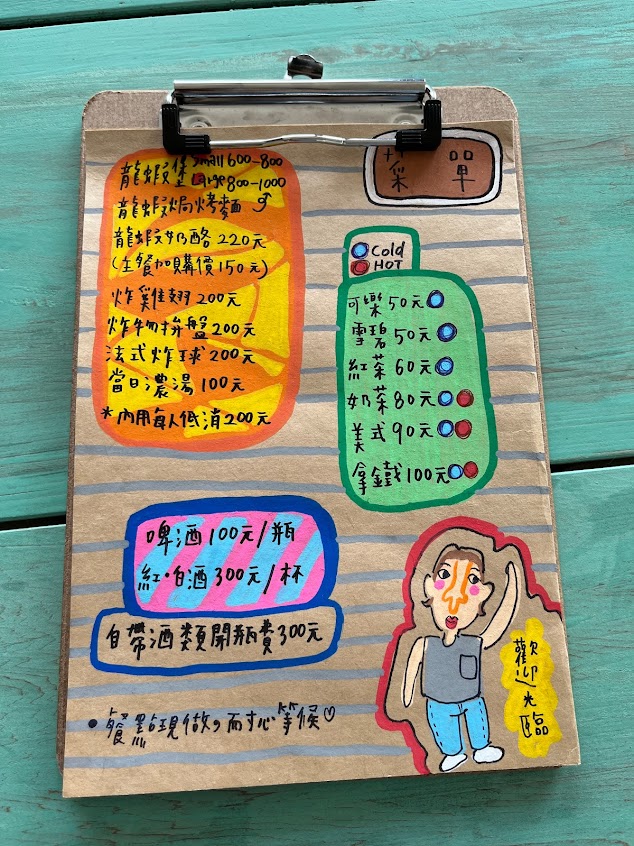 菜單
龍蝦堡 Small 600-800
Large 800-1000
龍蝦焗烤麵
龍蝦奶酪 220元
(主餐加購價150元)
炸雞翅 200元
炸物拚盤 200元
法式炸球 200元
當日濃湯 100元
*內用每人低消200元
Cold
HOT
可樂 50元
雪碧 50元
紅茶 60元
奶茶 80元
美式 90元
拿鐵 100元
啤酒 100元/瓶
紅.白酒 300元/杯
自帶酒類開瓶費 300元
•餐點現做,耐心等候♡
歡迎光臨